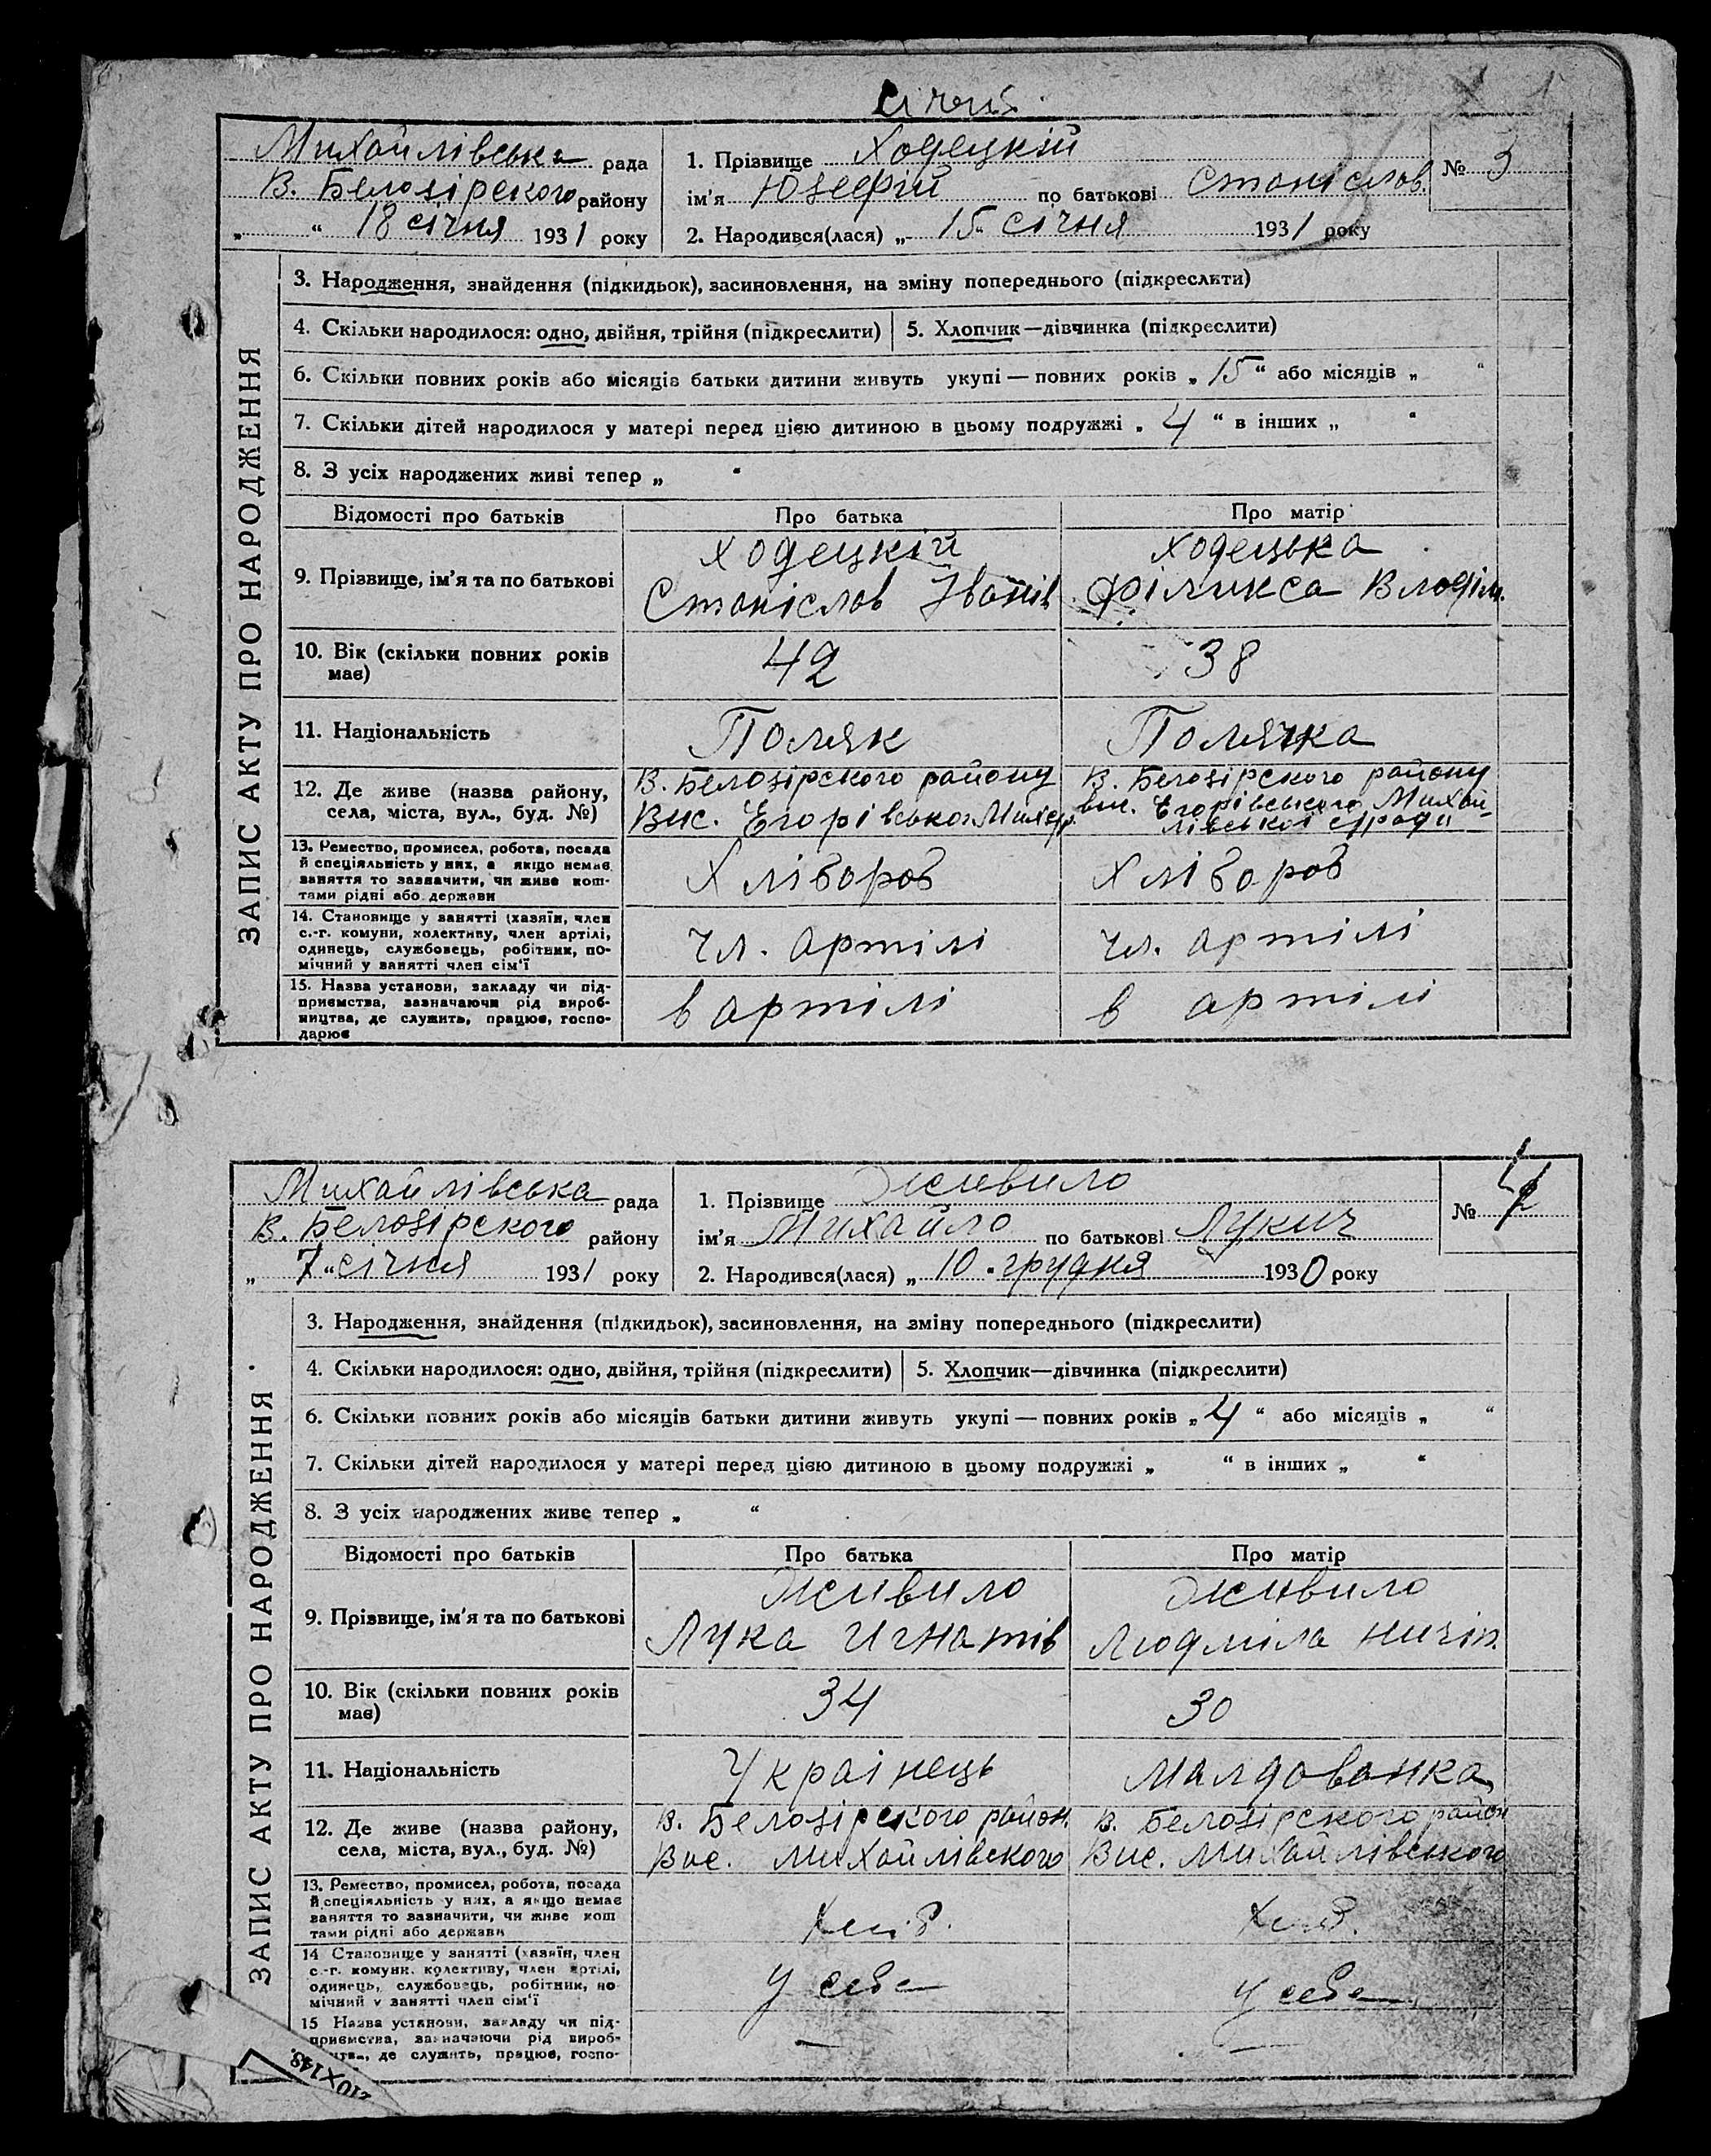 січня
1
Михайлівська рада
В. Белозірского району
„ “ 18 січня 1931 року
1. Прізвище Ходецкій
ім'я Юзефій по батькові Станіслав.
2. Народився(лася) „ 15 “ січня 1931 року
№ 3
ЗАПИС АКТУ ПРО НАРОДЖЕННЯ
3. Народження, знайдення (підкидьок), засиновлення, на зміну попереднього (підкреслити)
4. Скільки народилося: одно, двійня, трійня (підкреслити) 5. Хлопчик—дівчинка (підкреслити)
6. Скільки повних років або місяців батьки дитини живуть укупі — повних років „ 15 “ або місяців „ “
7. Скільки дітей народилося у матері перед цією дитиною в цьому подружжі „ 4 “ в інших „ “
8. З усіх народжених живі тепер „ “
Відомості про батьків Про батька Про матір
9. Прізвище, ім'я та по батькові
Ходецкій
Станіслав Іванів
Ходецька
Філикса Владім.
10. Вік (скільки повних років
має)
42 38
11. Національність Поляк Полячка
12. Де живе (назва району,
села, міста, вул., буд. №)
В. Белозірского району
Вис. Егорівського Михср.
В. Белозірского району
вис. Егорівського Михай-
лівської с/ради
13. Ремество, промисел, робота, посада
й спеціяльність у них, а якщо немає
заняття то зазначити, чи живе кош-
тами рідні або держави
Хлібороб Хлібороб
14. Становище у занятті (хазяїн, член
с.-г. комуни, колективу, член артілі,
одинець, службовець, робітник, по-
мічний у занятті член сім'ї
чл. артілі чл. артілі
15. Назва установи, закладу чи під-
приємства, зазначаючи рід вироб-
ництва, де служить, працює, госпо-
дарює
в артілі в артілі
Михайлівська рада
В. Белозірского району
„ 7 “ січня 1931 року
1. Прізвище Живило
ім'я Михайло по батькові Лукич
2. Народився(лася) „ 10 “ грудня 1930 року
№ 4
ЗАПИС АКТУ ПРО НАРОДЖЕННЯ
3. Народження, знайдення (підкидьок), засиновлення, на зміну попереднього (підкреслити)
4. Скільки народилося: одно, двійня, трійня (підкреслити) 5. Хлопчик—дівчинка (підкреслити)
6. Скільки повних років або місяців батьки дитини живуть укупі — повних років „ 4 “ або місяців „ “
7. Скільки дітей народилося у матері перед цією дитиною в цьому подружжі „ “ в інших „ “
8. З усіх народжених живе тепер „ “
Відомості про батьків Про батька Про матір
9. Прізвище, ім'я та по батькові
Живило
Лука Игнатів
Живило
Людміла Ничіп.
10. Вік (скільки повних років
має)
34 30
11. Національність Українець Малдованка
12. Де живе (назва району,
села, міста, вул., буд. №)
В. Белозірского район.
Вис. Михайлівского
В. Белозірского район
Вис. Михайлівського
13. Ремество, промисел, робота, посада
й спеціяльність у них, а якщо немає
заняття то зазначити, чи живе кош
тами рідні або держави
Хліб. Хліб.
14 Становище у занятті (хазяїн, член
с.-г. комуни, колективу, член артілі,
одинець, службовець, робітник, по-
мічний у занятті член сім'ї
у себе у себе
15 Назва установи, закладу чи під-
приємства, зазначаючи рід вироб-
де служить, працює, госпо-
210×148.